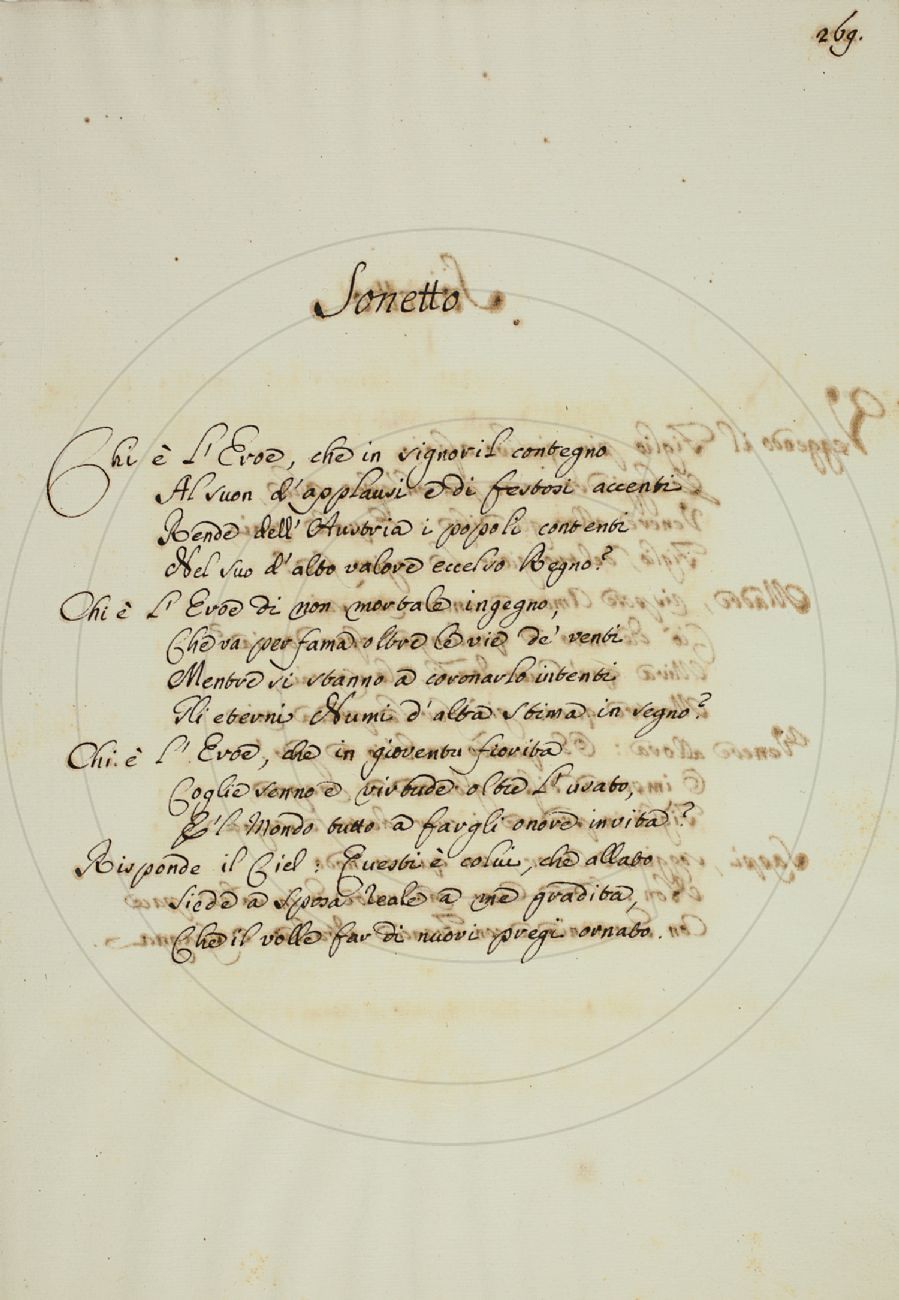 269.
Sonetto
Chi è L'Eroe, che in signoril contegno
Al suon d'applausi e di festosi accenti
Rende dell'Austria i popoli contenti
Nel suo d'alto valore eccelso Regno?
Chi è L'Eroe di non mortale ingegno,
Che va per fama oltre le vie de' venti
Mentre si stanno a coronarlo intenti
Gli eterni Numi d'alta stima in segno?
Chi è L'Eroe, che in gioventu fiorita
Coglie senno e virtude oltre L'usato,
E'l Mondo tutto a fargli onore invita?
Risponde il Ciel: Questi è colui, che allato
Siede a Sposa Reale a me gradita,
Che il volle far di nuovi pregi ornato.